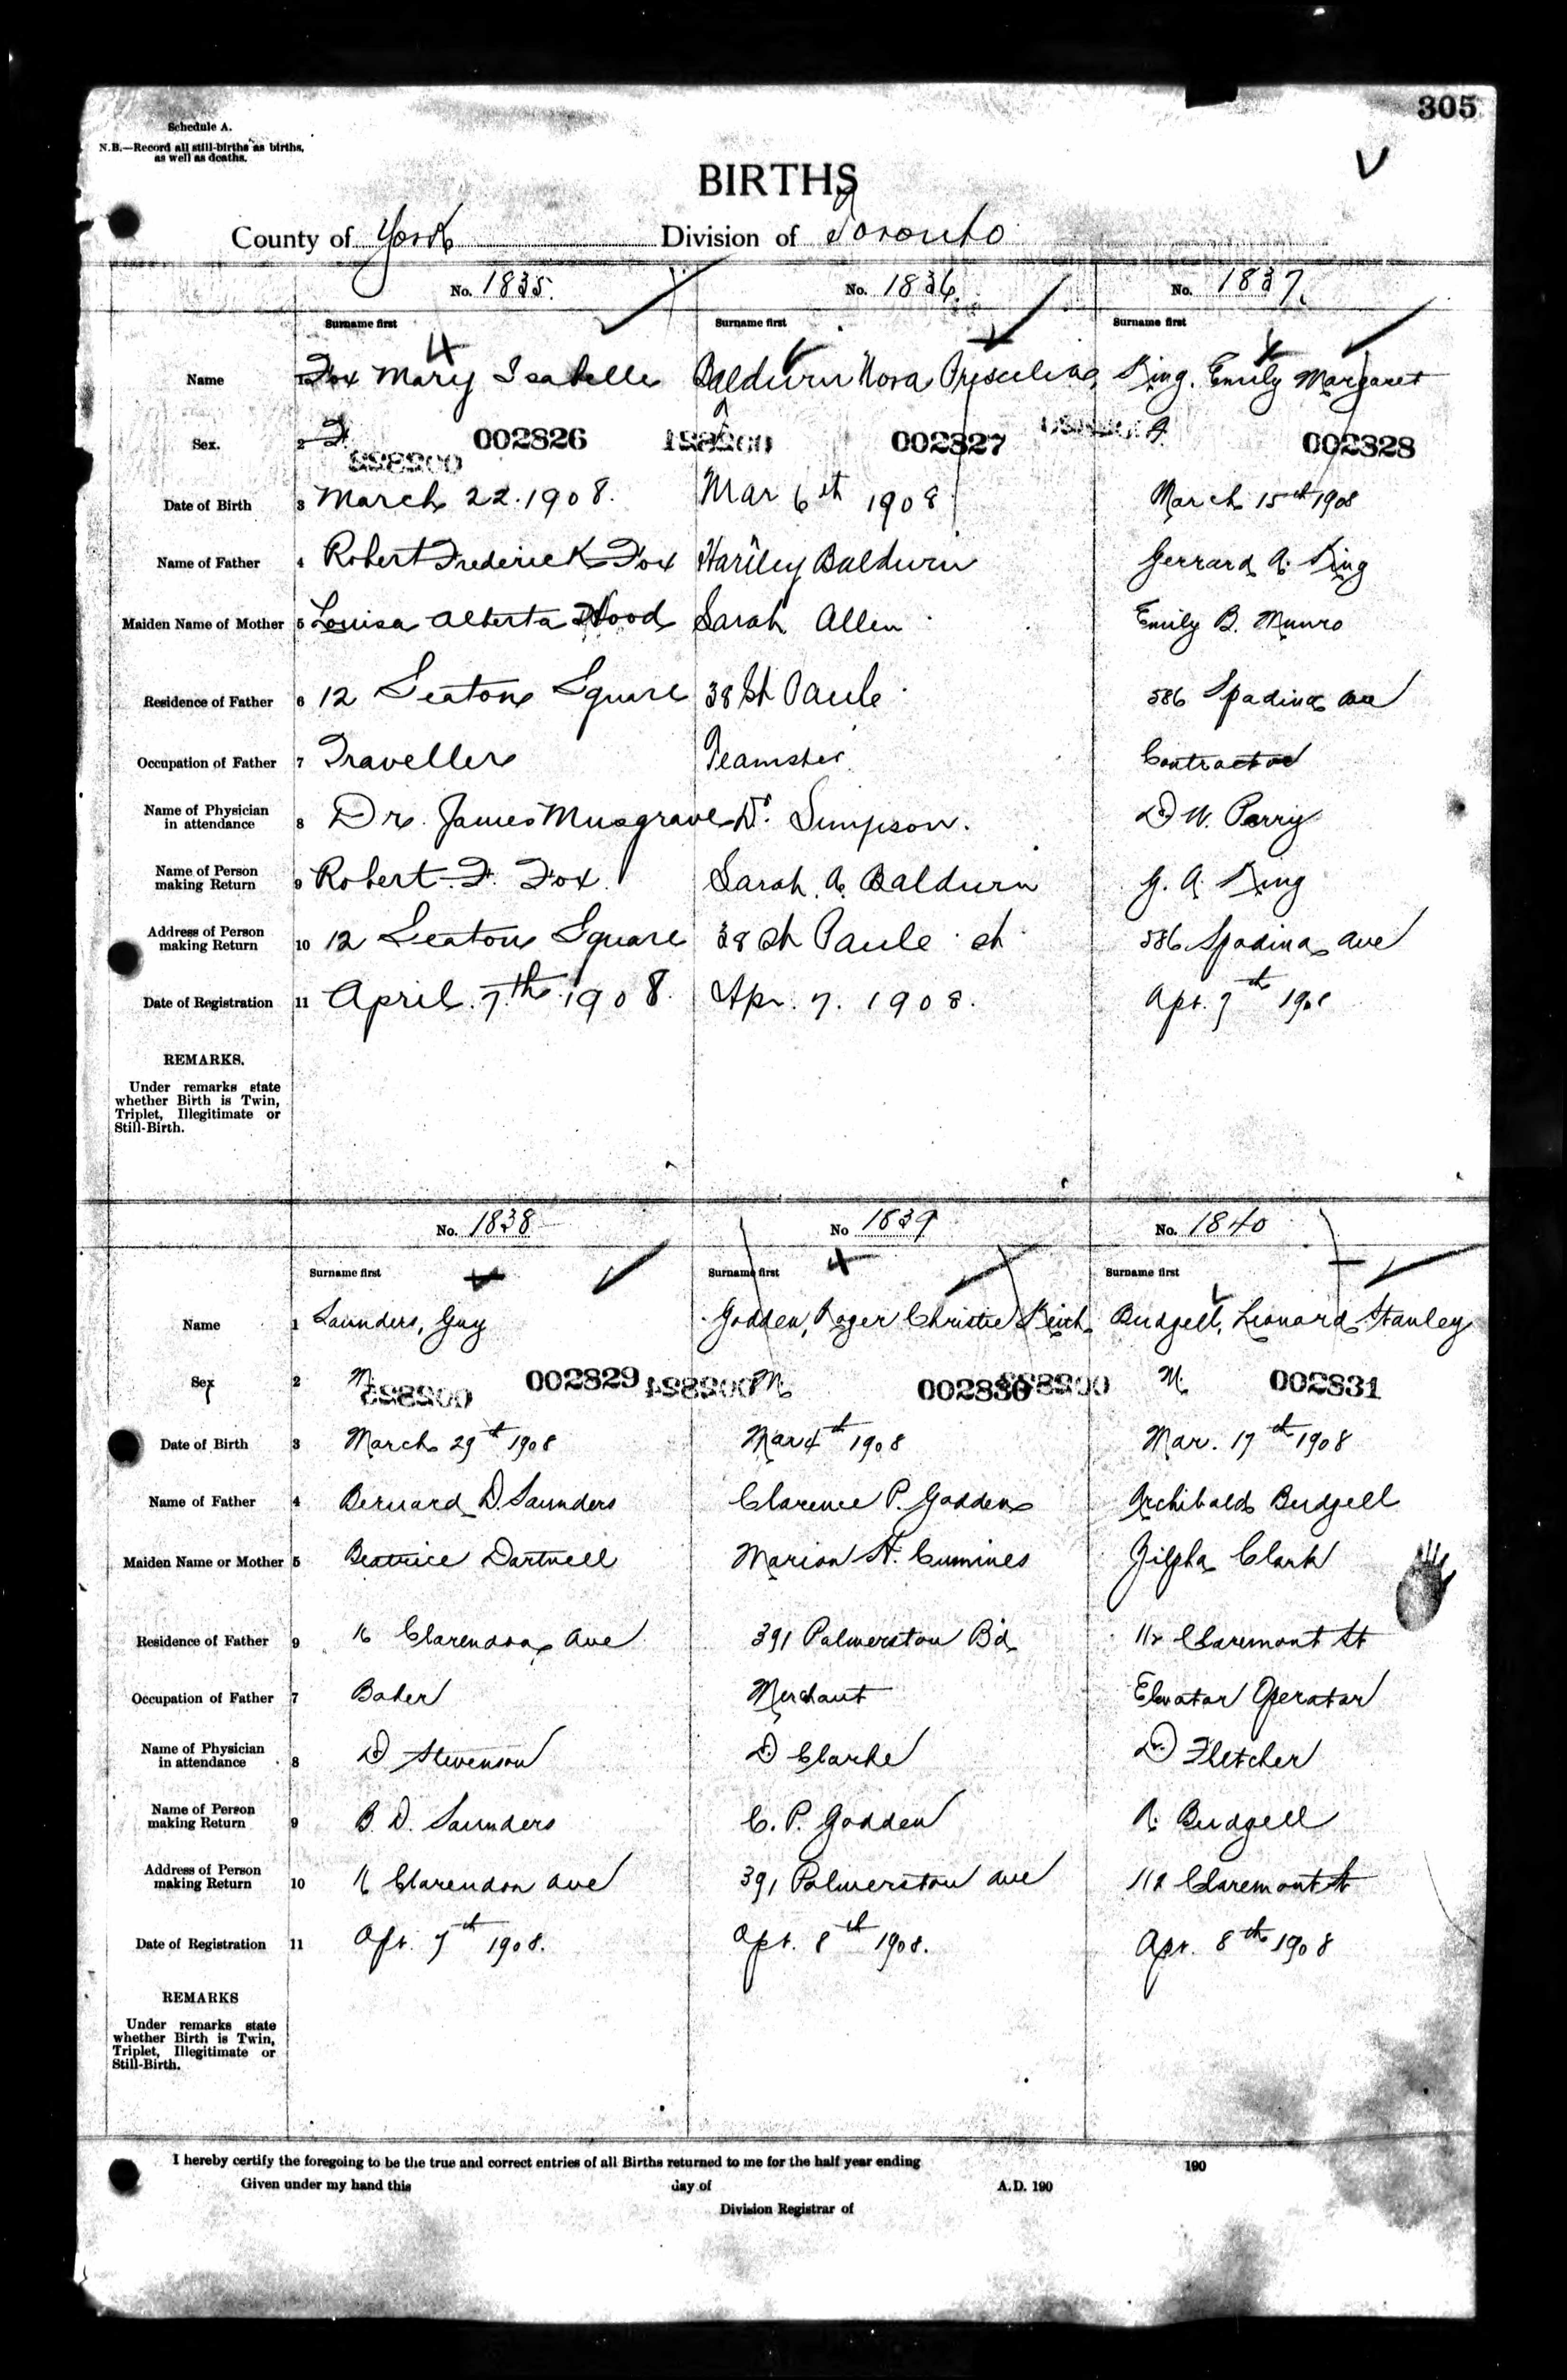 305
Schedule A.
N.B.—Record all still-births as births,
as well as deaths.
BIRTHS
County of York Division of Toronto
No. 1835. No. 1836. No. 1837.
Surname first Surname first Surname first
Name 1 Fox Mary Isabelle Baldwin Nora Priscilina King, Emily Margaret
Sex. 2 F. 002826 002827 F. 002828
Date of Birth 3 March 22. 1908. Mar 6th 1908 March 15th 1908
Name of Father 4 Robert Frederick Fox Hartley Baldwin Gerrard A. King
Maiden Name of Mother 5 Louisa Alberta Wood Sarah Allen Emily B. Munro
Residence of Father 6 12 Seaton Square 38 St Paule 586 Spadina Ave
Occupation of Father 7 Traveller Teamster Contractor
Name of Physician
in attendance 8 Dr. James Musgrave Dr. Simpson. Dr W. Parry
Name of Person
making Return 9 Robert F. Fox. Sarah A Baldwin G. A. King
Address of Person
making Return 10 12 Seaton Square 38 St Paule St 586 Spadina Ave
Date of Registration 11 April 7th 1908. Apr. 7. 1908. Apr. 7th 1908
REMARKS.
Under remarks state
whether Birth is Twin,
Triplet, Illegitimate or
Still-Birth.
No. 1838 No 1839 No. 1840
Surname first Surname first Surname first
Name 1 Saunders, Guy Godden, Roger Christie Keith Budgell, Leonard Stanley
Sex 2 M. 002829 M. 002830 M. 002831
Date of Birth 3 March 29th 1908 Mar 4th 1908 Mar. 17th 1908
Name of Father 4 Bernard D. Saunders Clarence P. Godden Archibald Budgell
Maiden Name or Mother 5 Beatrice Dartnell Marion St. Cumines Zilpha Clark
Residence of Father 9 16 Clarendon Ave 391 Palmerston Bd 112 Claremont St
Occupation of Father 7 Baker Merchant Elevator Operator
Name of Physician
in attendance 8 Dr Stevenson Dr Clarke Dr. Fletcher
Name of Person
making Return 9 B. D. Saunders C. P. Godden A. Budgell
Address of Person
making Return 10 16 Clarendon Ave 391 Palmerston Ave 112 Claremont St
Date of Registration 11 Apr. 7th 1908. Apr. 8th 1908. Apr. 8th 1908
REMARKS
Under remarks state
whether Birth is Twin,
Triplet, Illegitimate or
Still-Birth.
I hereby certify the foregoing to be the true and correct entries of all Births returned to me for the half year ending 190
Given under my hand this day of A.D. 190
Division Registrar of